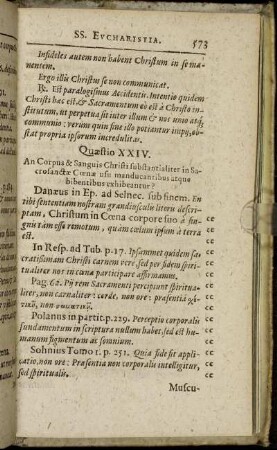 SS. EVCHARISTIA. 573
Infideles autem non habent Christum in se ma-
nentem.
Ergo illis Christus se non communicat.
℞. Est paralogismus Accidentis. Intentio quidem
Christi hæc est, & Sacramentum eò est à Christo in-
stitutum, ut perpetua sit inter illum & nos unio atq;
communio: verum quin sine illo potiantur impij, ob-
stat propria ipsorum incredulitas.
Quæstio XXIV.
An Corpus & Sanguis Christi substantialiter in Sa-
crosanctæ Cœnæ usu manducantibus atque
bibentibus exhibeantur?
Danæus in Ep. ad Selnec. sub finem. En
tibi sententiam nostram grandiusculis literis descri-
ptam, Christum in Cœna corpore suo à si-
gnis tam esse remotum, quam cœlum ipsum à terra
est.
In Resp. ad Tub. p. 17. Ipsammet quidem sa-
cratissimam Christi carnem verè, sed per fidem spiritu-
aliter nos in cœna participare affirmamus.
Pag. 62. Pij rem Sacramenti percipiunt spiritua-
liter, non carnaliter: corde, non ore: præsentiâ
Polanus in partit. p. 229. Perceptio corporalis
fundamentum in scriptura nullum habet, sed est hu-
manum figmentum ac somnium.
Sohnius Tomo 1. p. 251. Quia fide sit applic-
atio, non ore: Præsentia non corporalis intelligitur,
sed spiritualis.
Muscu-